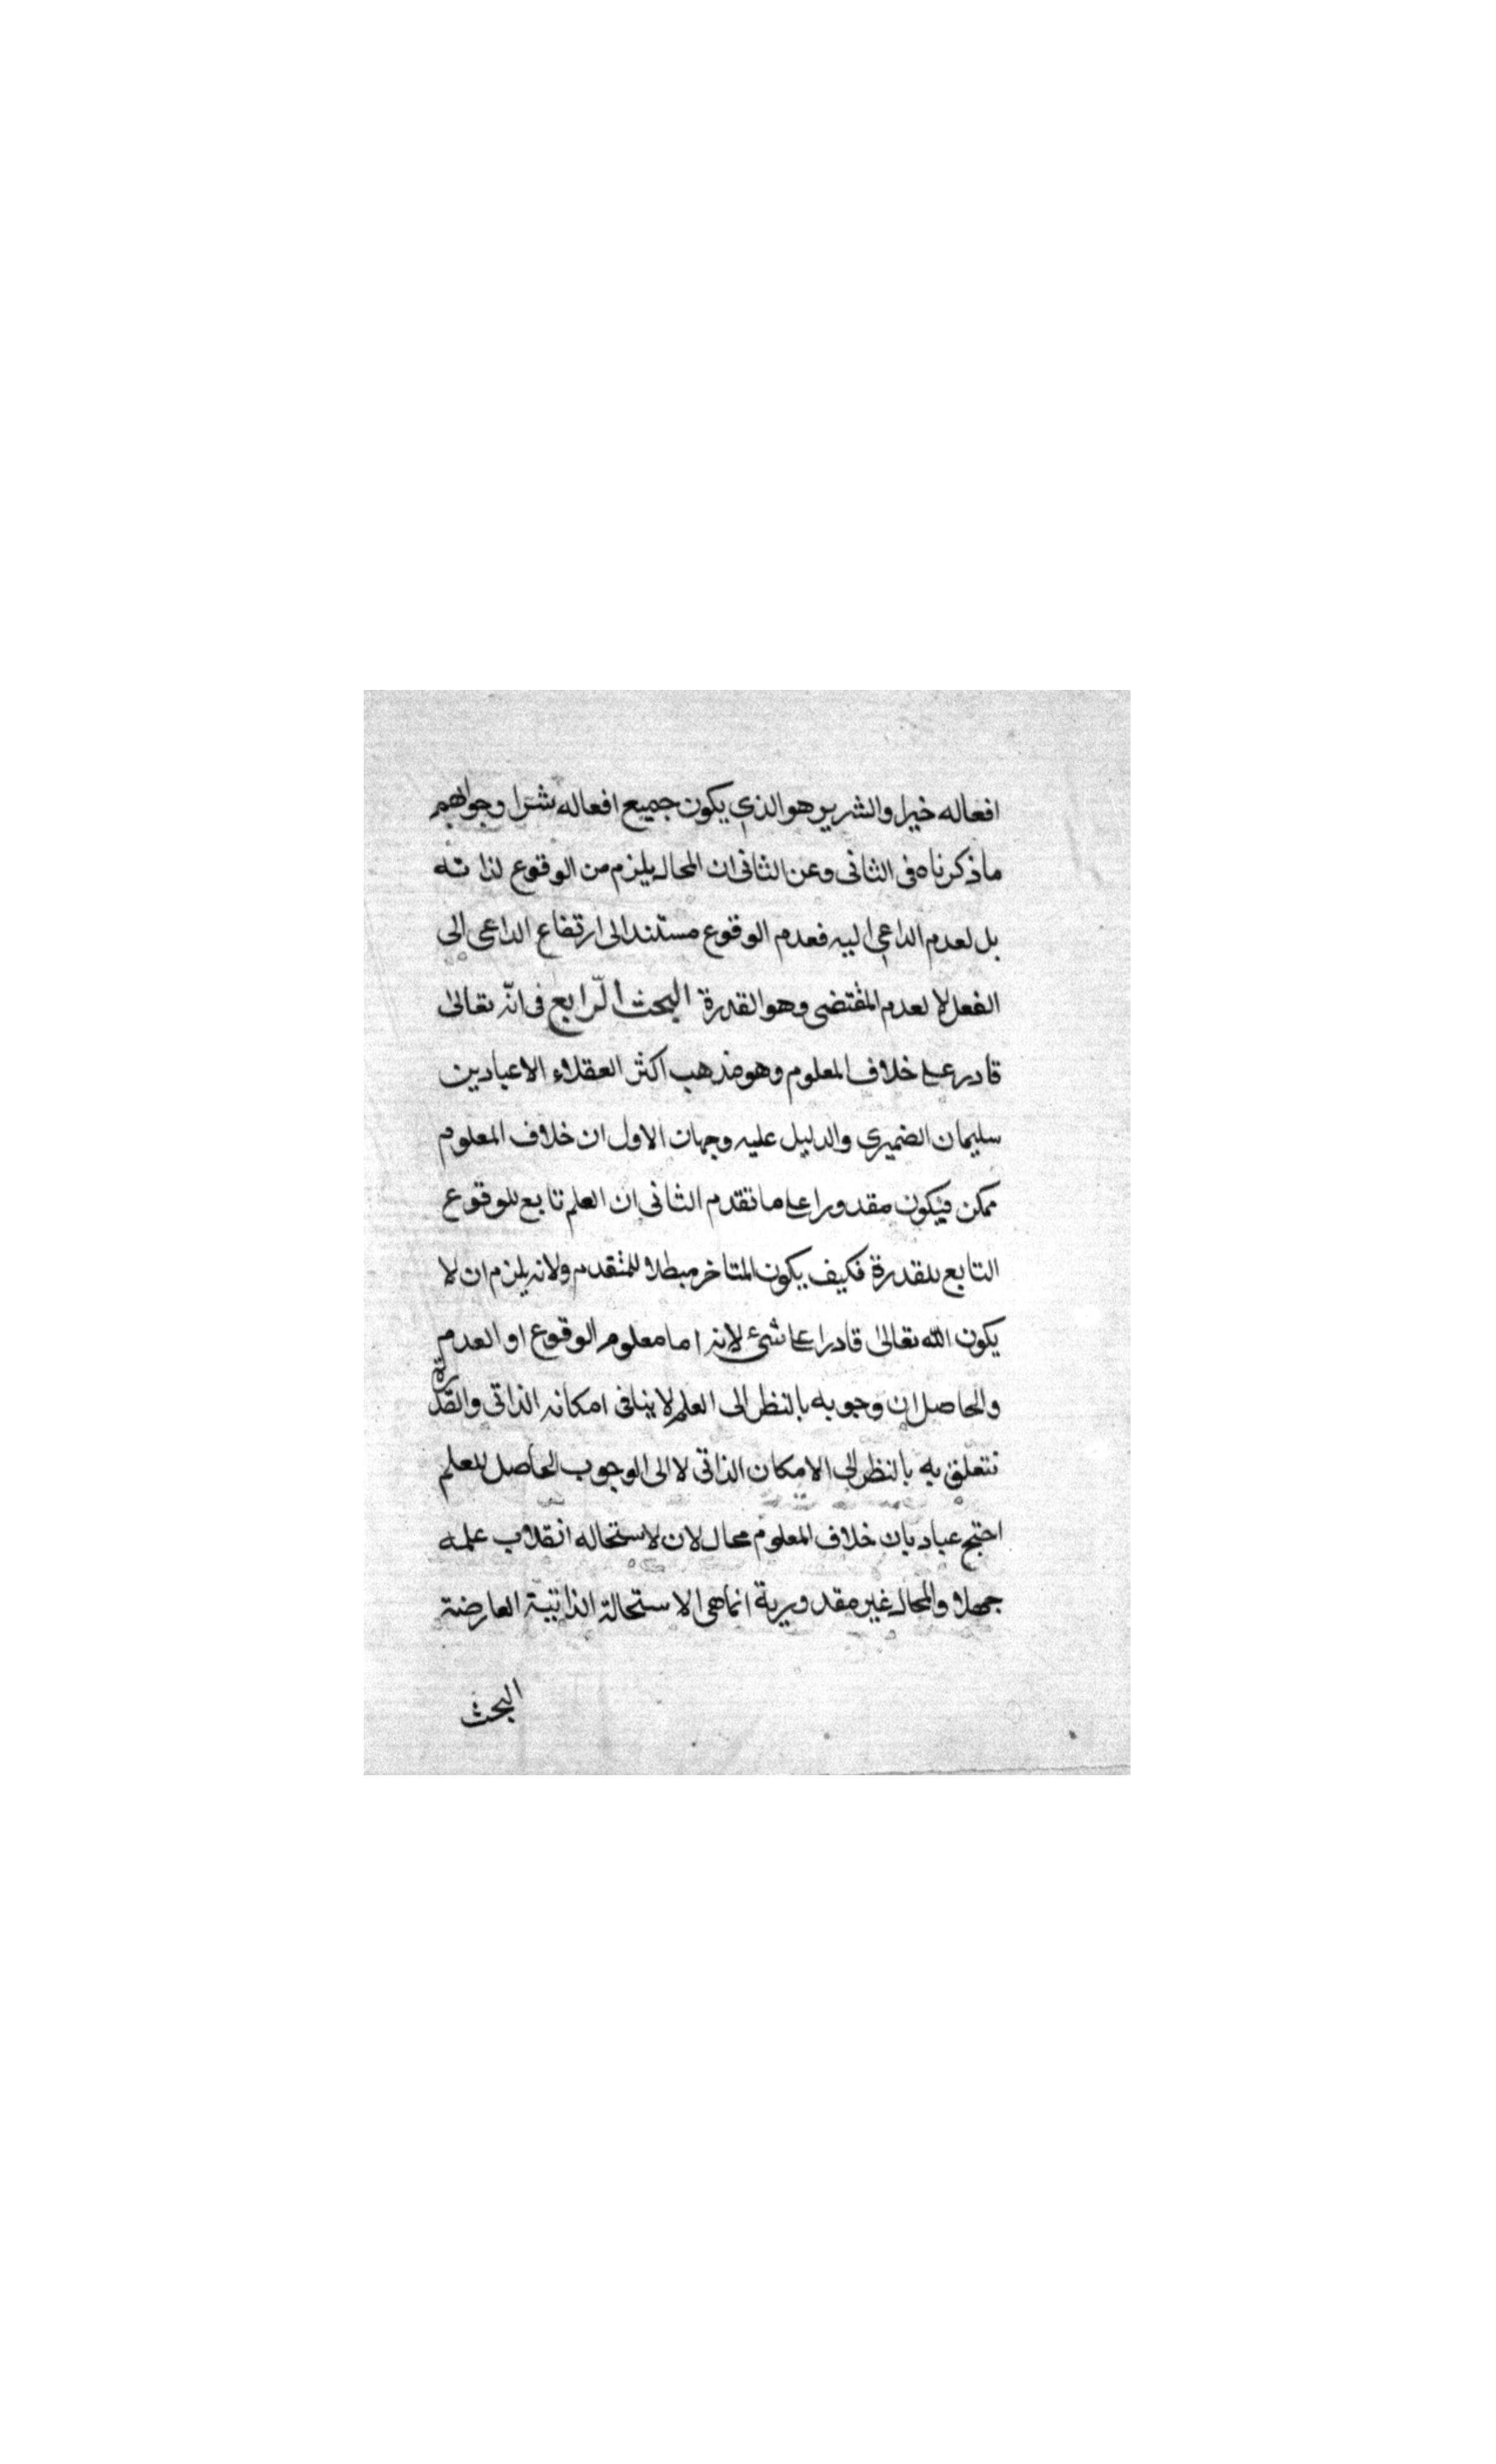 افعاله خيرا والشرير هو الذي يكون جميع افعاله شرا وجوابهم
ما ذكرناه فى الثانى وعن الثانى ان المحال يلزم من الوقوع لذاته
بل لعدم الداعى اليه فعدم الوقوع مستند الى ارتفاع الداعى الى
الفعل لا لعدم المقتضى وهو القدرة البحث الرّابع فى انّه تعالى
قادر على خلاف المعلوم وهو مذهب اكثر العقلاء الا عباد بن
سليمان الضميرى والدليل عليه وجهان الاول ان خلاف المعلوم
ممكن فيكون مقدورا على ما تقدم الثانى ان العلم تابع للوقوع
التابع للقدرة فكيف يكون المتاخر مبطلا للمتقدم ولانه يلزم ان لا
يكون الله تعالى قادرا على شىء لانه اما معلوم الوقوع او العدم
والحاصل ان وجوبه بالنظر الى العلم لا ينافى امكانه الذاتى والقدرة
تتعلق به بالنظر الى الامكان الذاتى لا الى الوجوب الحاصل للعلم
احتج عباد بان خلاف المعلوم محال لان لاستحاله انقلاب علمه
جهلا والمحال غير مقدورية انما هى الاستحالة الذاتية العارضة
البحث